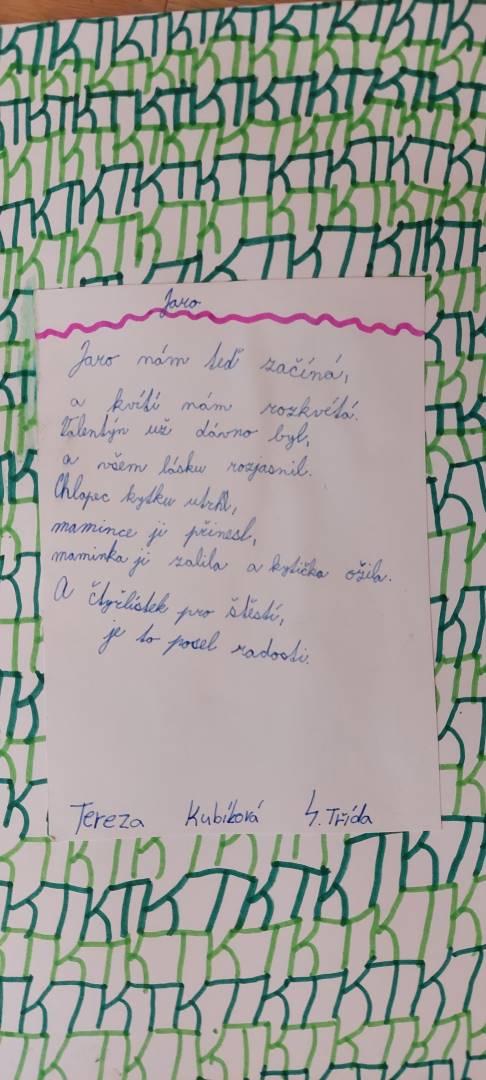 Jaro
Jaro nám teď začíná,
a kvítí nám rozkvétá.
Valentýn už dávno byl,
a všem lásku rozjasnil.
Chlapec kytku utrhl,
mamince ji přinesl,
maminka ji zalila a kytička ožila.
A čtyřlístek pro štěstí,
je to posel radosti.
Tereza Kubíková 4. Třída